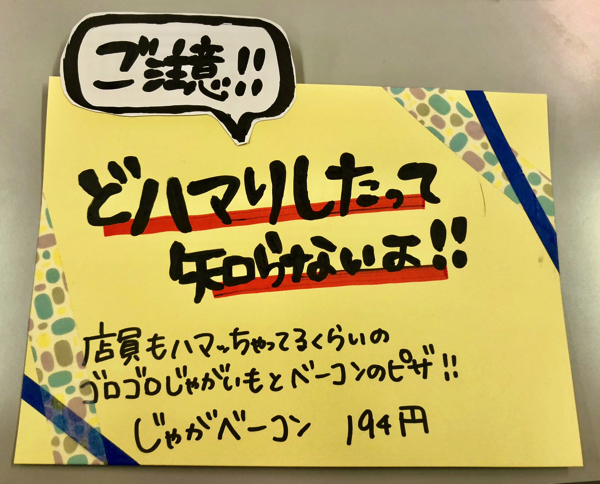 ご注意!!
どハマりしたって
知らないよ!!
店員もハマっちゃってるくらいの
ゴロゴロじゃがいもとベーコンのピザ!!
じゃがベーコン 194円